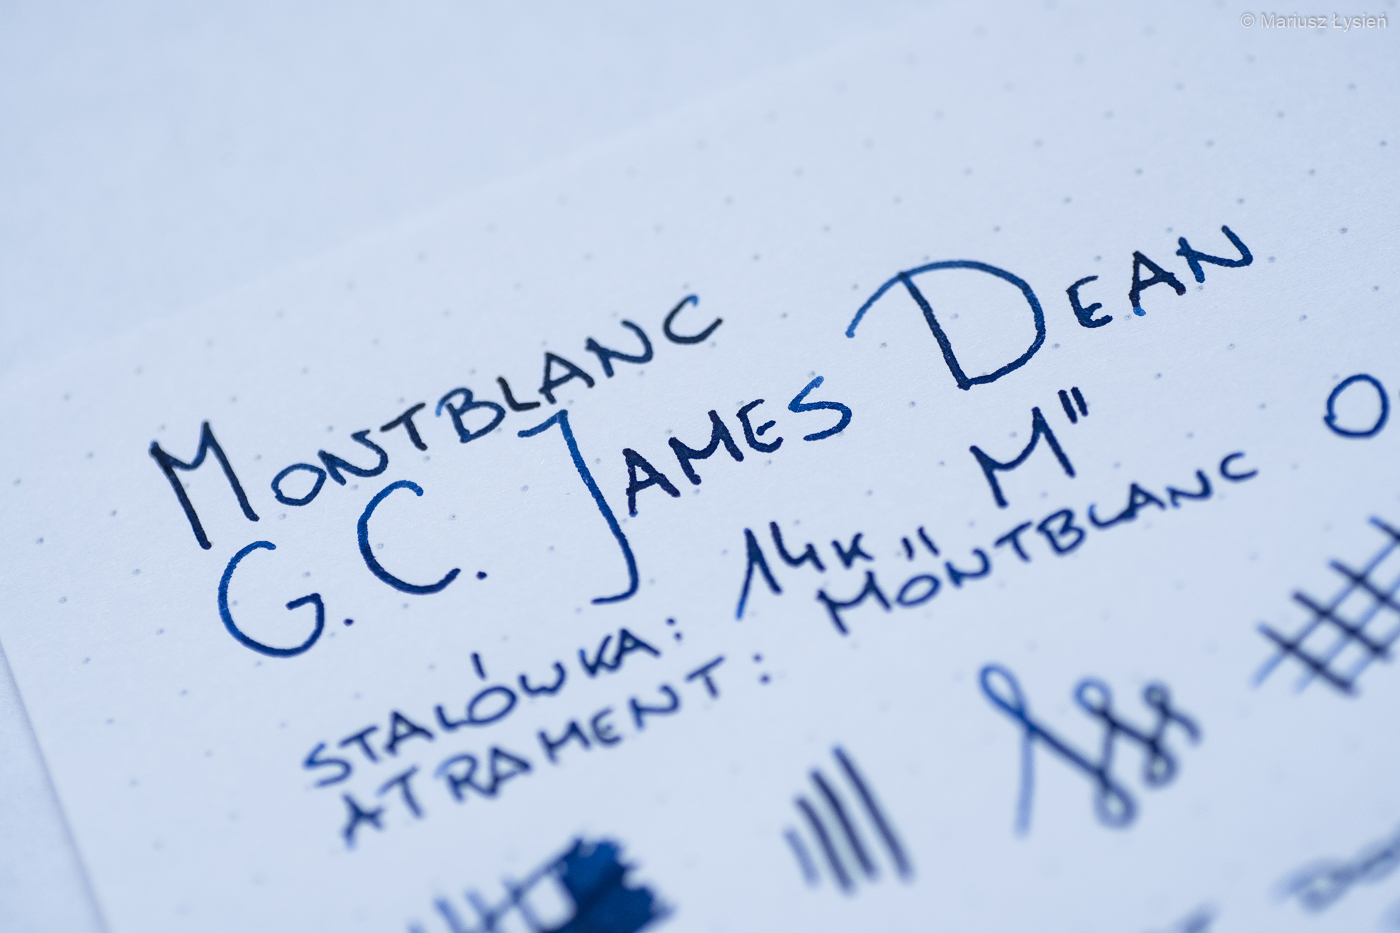 © Mariusz Łysień
MONTBLANC
G. C. JAMES DEAN
STALÓWKA: 14K "M"
ATRAMENT: MONTBLANC